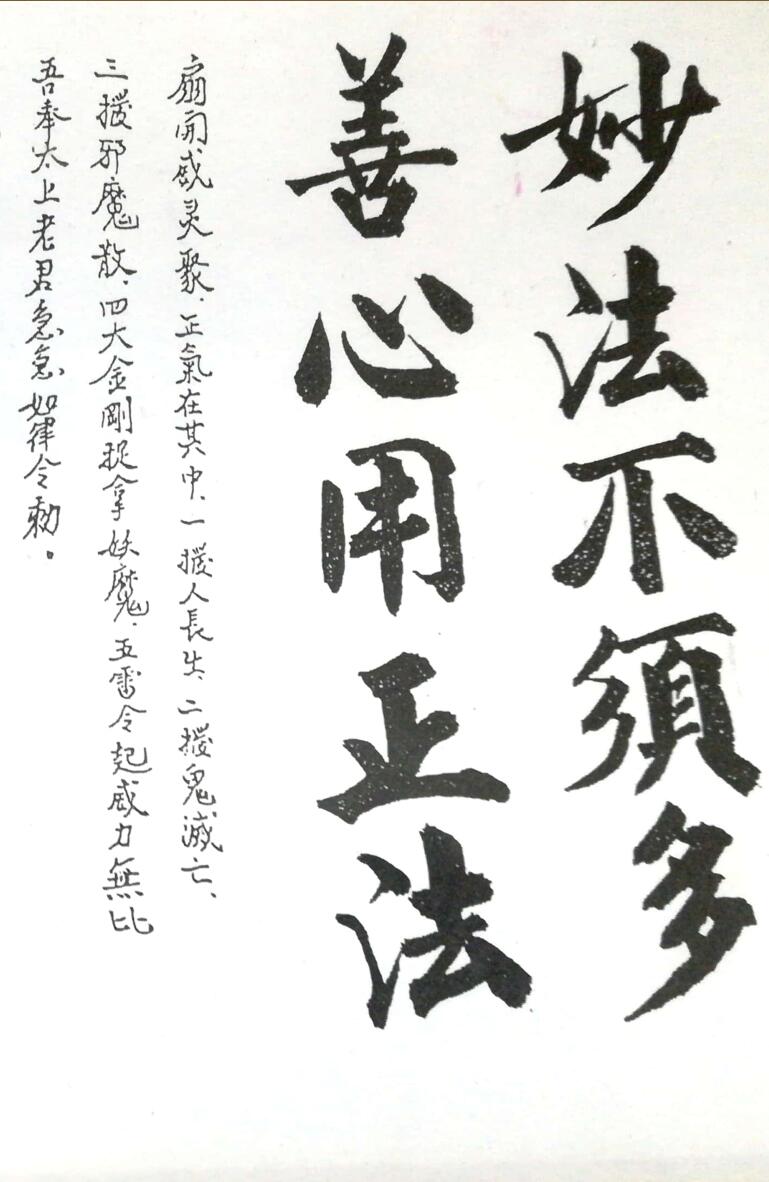 妙法不須多
善心用正法
扇開威灵聚、正氣在其中、一拨人長生、二拨鬼滅亡、
三拨邪魔散、四大金剛捉拿妖魔、五雷令起威力無比
吾奉太上老君急急如律令勅。